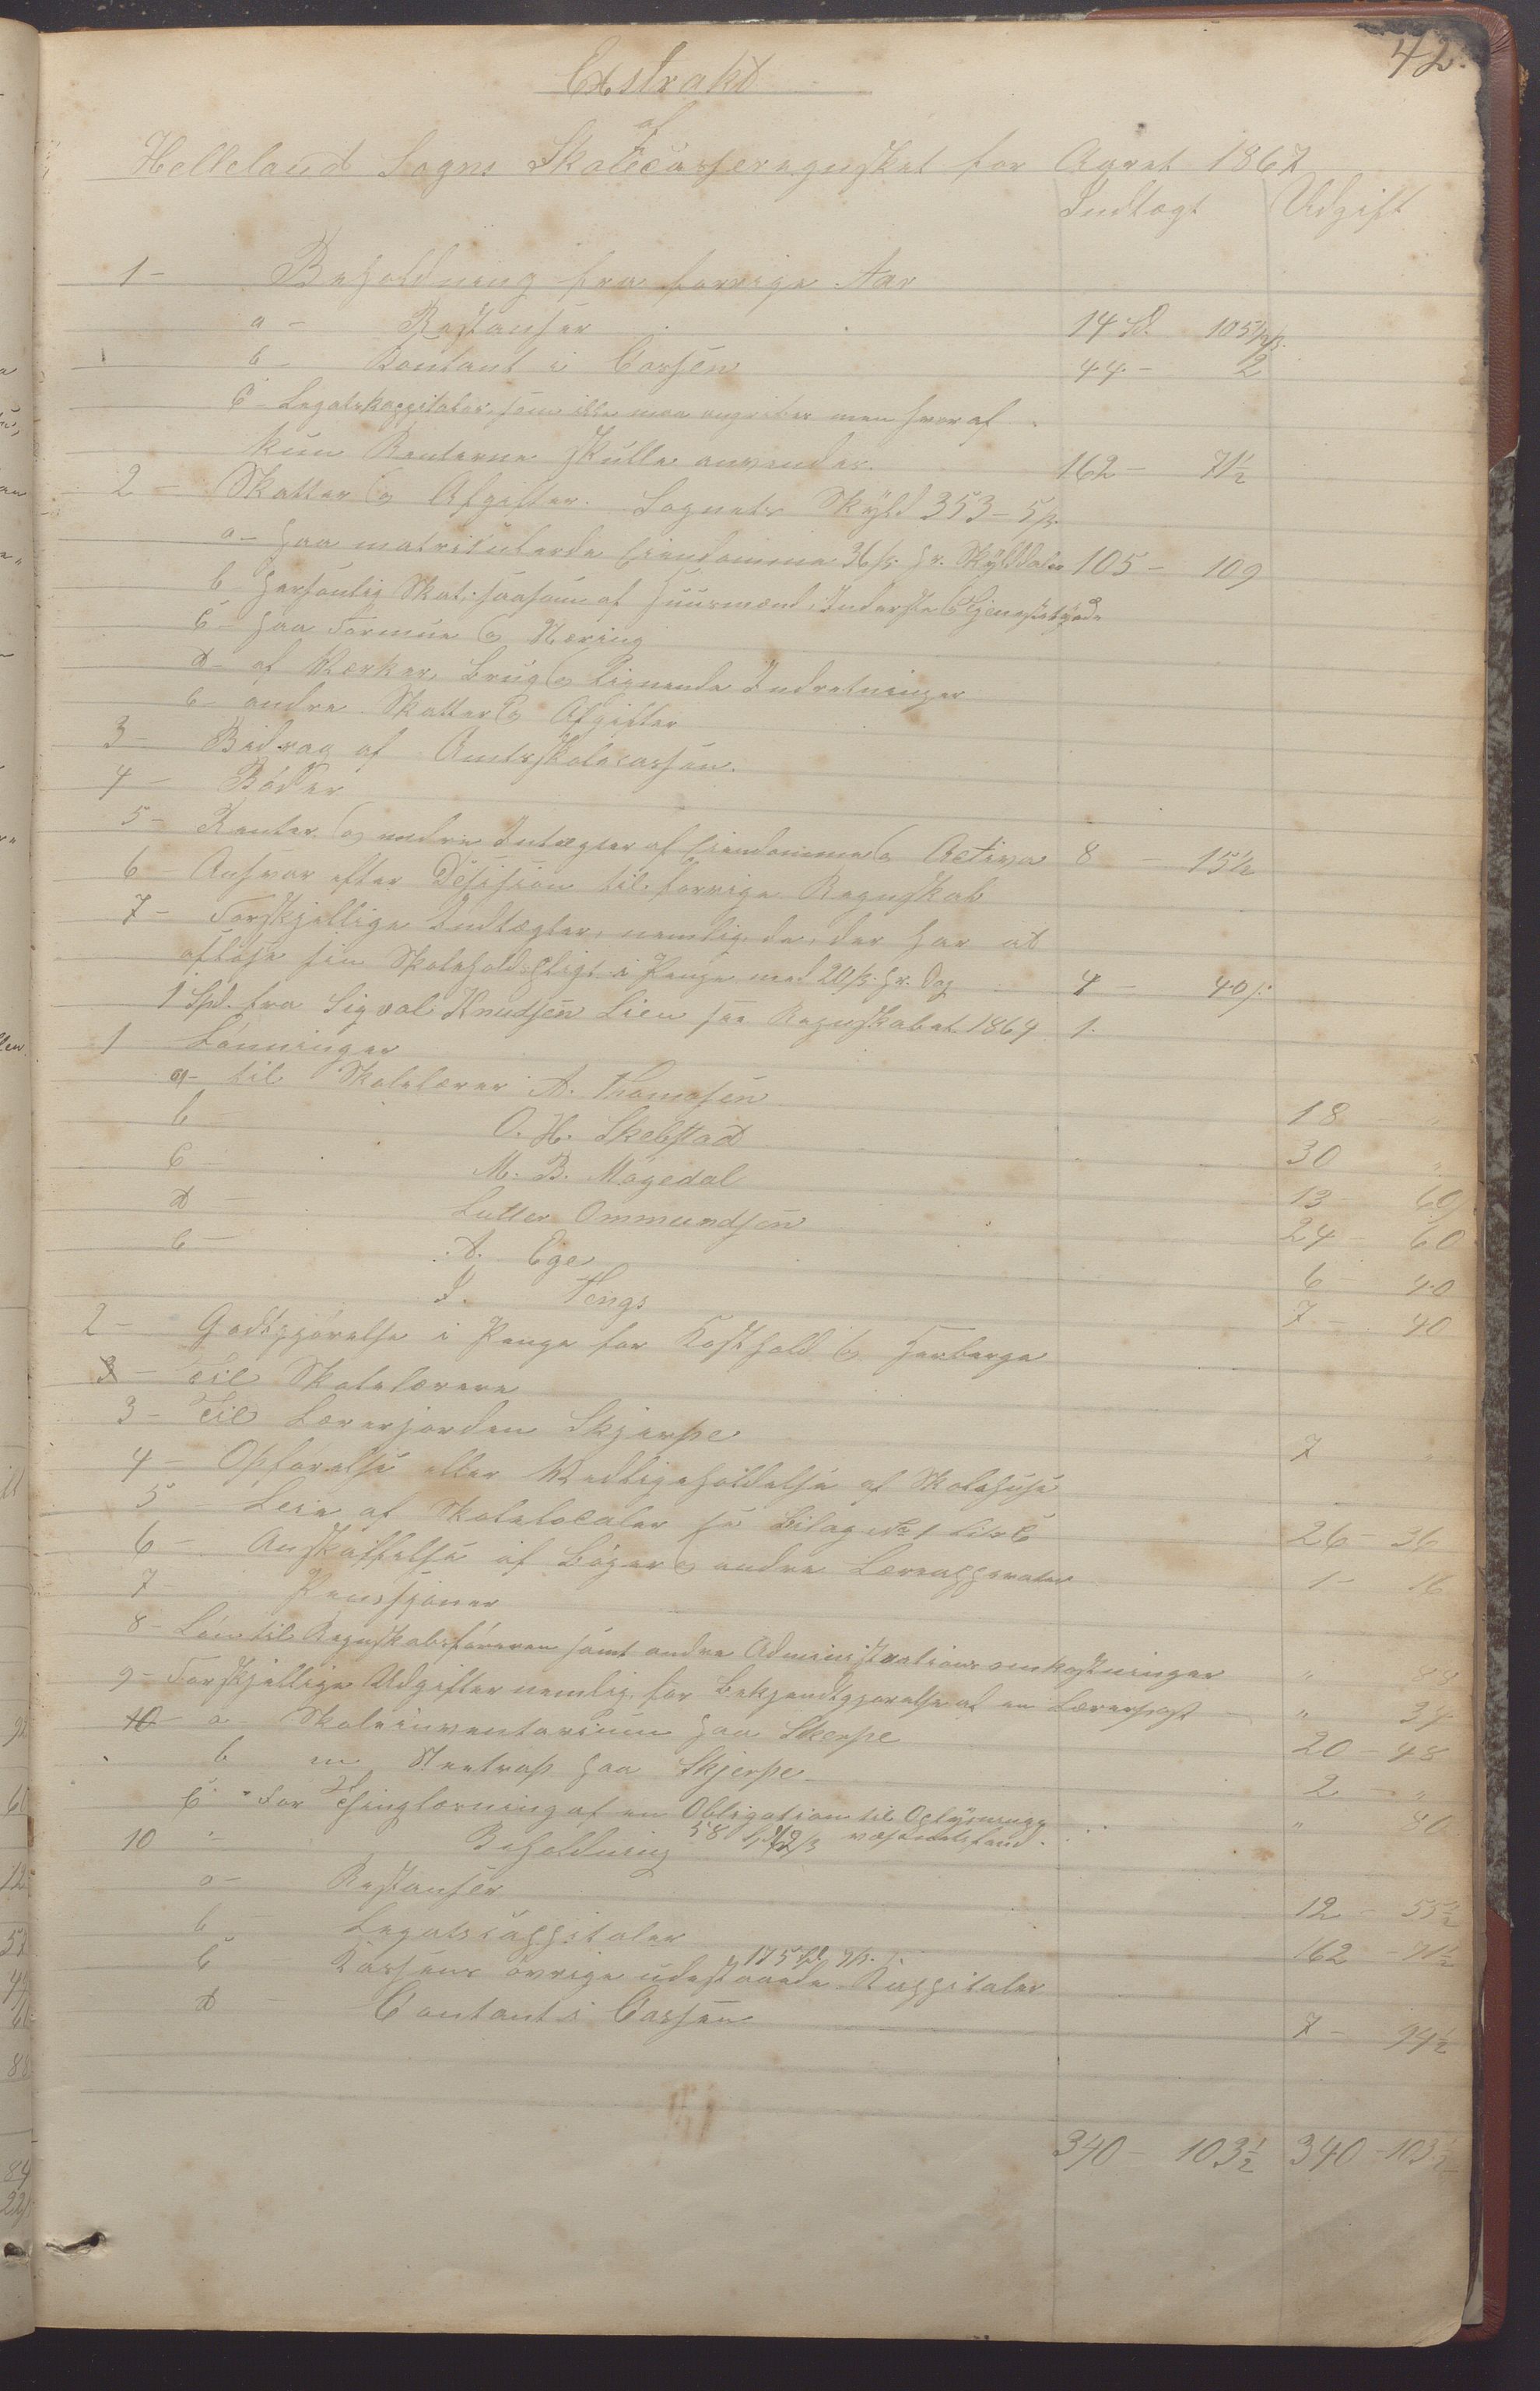 42.
Extrakt
af
Helleland Sogns Skolecasseregnskab for Aaret 1867
Indtægt Udgift
1 - Beholdning fra forrige Aar
a - Restanser 14 Sp. 105 1/2 ß.
b - Contant i Cassen 44 - 2
c - Legatskappitaler, som ikke maa angribes men hvoraf
kun Renterne skulle anvendes. 162 - 71 1/2
2 - Skatter og Afgifter. Sognets Skyld 353 - 5 ß.
a - paa matriculerede Eiendomme 36 ß pr. Skylddaler 105 - 109
b personlig Skat, saasom af Huusmænd, Inderster og Tjenestetyende
c - paa Formue og Næring
d - af Værker, Brug og lignende Indretninger
e - andre Skatter og Afgifter
3 - Bidrag af Amtsskolecassen.
4 - Bøder
5 - Renter og andre Indtægter af Eiendomme og Activa 8 - 15 1/2
6 - Ansvar efter Desision til forrige Regnskab
7 - Forskjellige Indtægter, nemlig de, der har at
afløse sin Skoleholdspligt i Penge med 20 ß. pr. Dag 4 - 40 ß
1 Spd. fra Sigval Knudsen Lien Regnskabet 1864 1.
1 Lønninger
a - til Skolelærer A. Thomasen 18 "
b - O. H. Skebstad 30 "
c - M. B. Møgedal 13 60
d - Lutter Ommundsen 24 - 60
e - A. Ege 6 - 40
S. Tengs 7 - 40
2 - Godtgjørelse i Penge for Kosthold og Herberge
3 - til Skolelærere
3 - til Lærerjorden Skjerpe 7 "
4 - Opførelse eller Vedligeholdelse af Skolehuse
5 - Leie af Skolelocaler se Bilag No 1 Litr C 26 - 36
6 - Anskaffelse af Bøger og andre Læreapperater 1 - 16
7 - Pensjoner
8 - Løn til Regnskabsføreren samt andre Administrationsomkostninger " 88
9 - Forskjellige Udgifter nemlig for Bekjendtgjørelse af en Lærerpost " 34
10 - a Skoleinventarium paa Skerpe 20 - 48
b en paa Skjerpe 2 - "
c - For Thinglæsning af en Obligation til Oplysnings
væsenets fond " 80
10 - Beholdning 58
a - Restanser 12 - 55 1/2
b - Legatscappitaler 162 - 71 1/2
c Kassens øvrige udestaaende Kappitaler 175
d Contant i Cassen 7 - 94 1/2
340 - 103 1/2 340 - 103 1/2